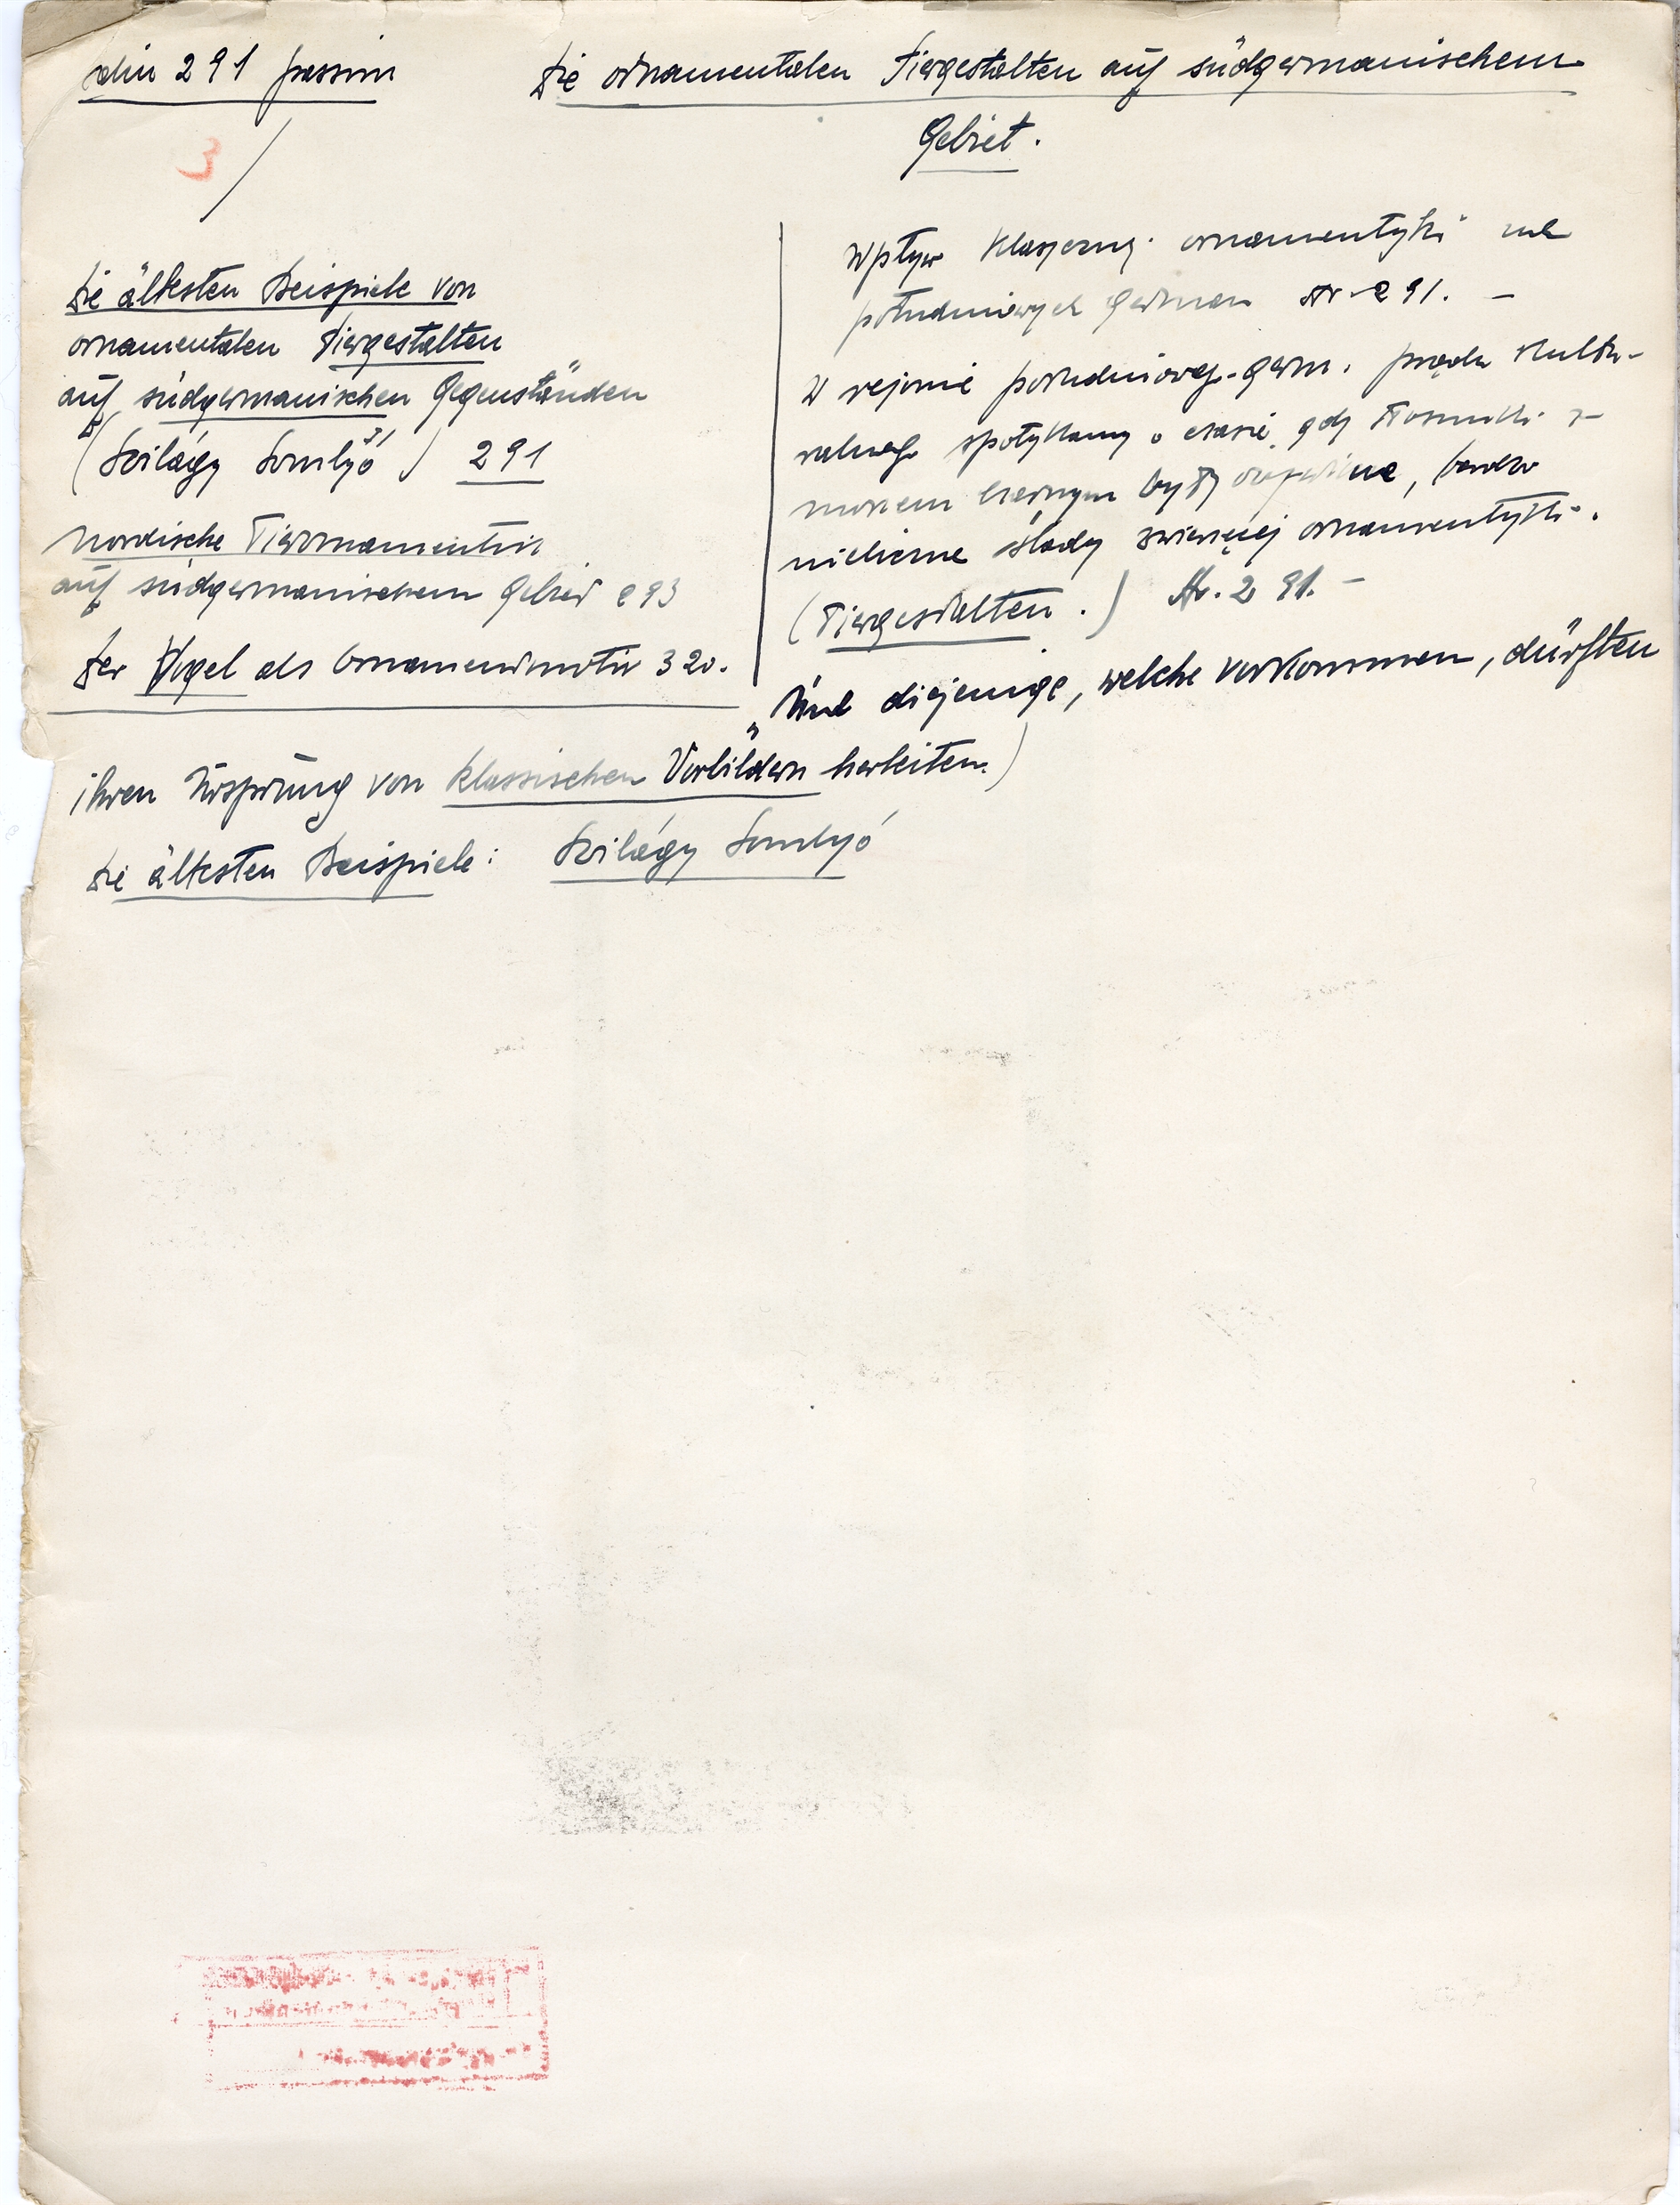 Alin 291 passim
Die ornamentalen Tiergestalten auf südgermanischem
Gebiet.
3
Die ältesten Beispiele von
ornamentalen Tiergestalten
auf südgermanischen Gegenständen
(Szilágy Somlyó) 291
Nordische Tierornamentik
auf südgermanischem Gebiet 293
Der Vogel als Ornamentmotiv 320.
Wpływ klasycznej ornamentyki na
południowych German str. 291. –
W rejonie południoweg.-germ. prądu kultu-
ralnego spotykamy o czasie, gdy stosunki z
morzem czarnym były ożywione, bardzo
nieliczne ślady zwierzęcej ornamentyki.
(Tiergestalten.) Str. 291. –
„Und diejenige, welche vorkommen, dürften
ihren Ursprung von klassischen Vorbildern herleiten.)
Die ältesten Beispiele: Szilágy Somlyó